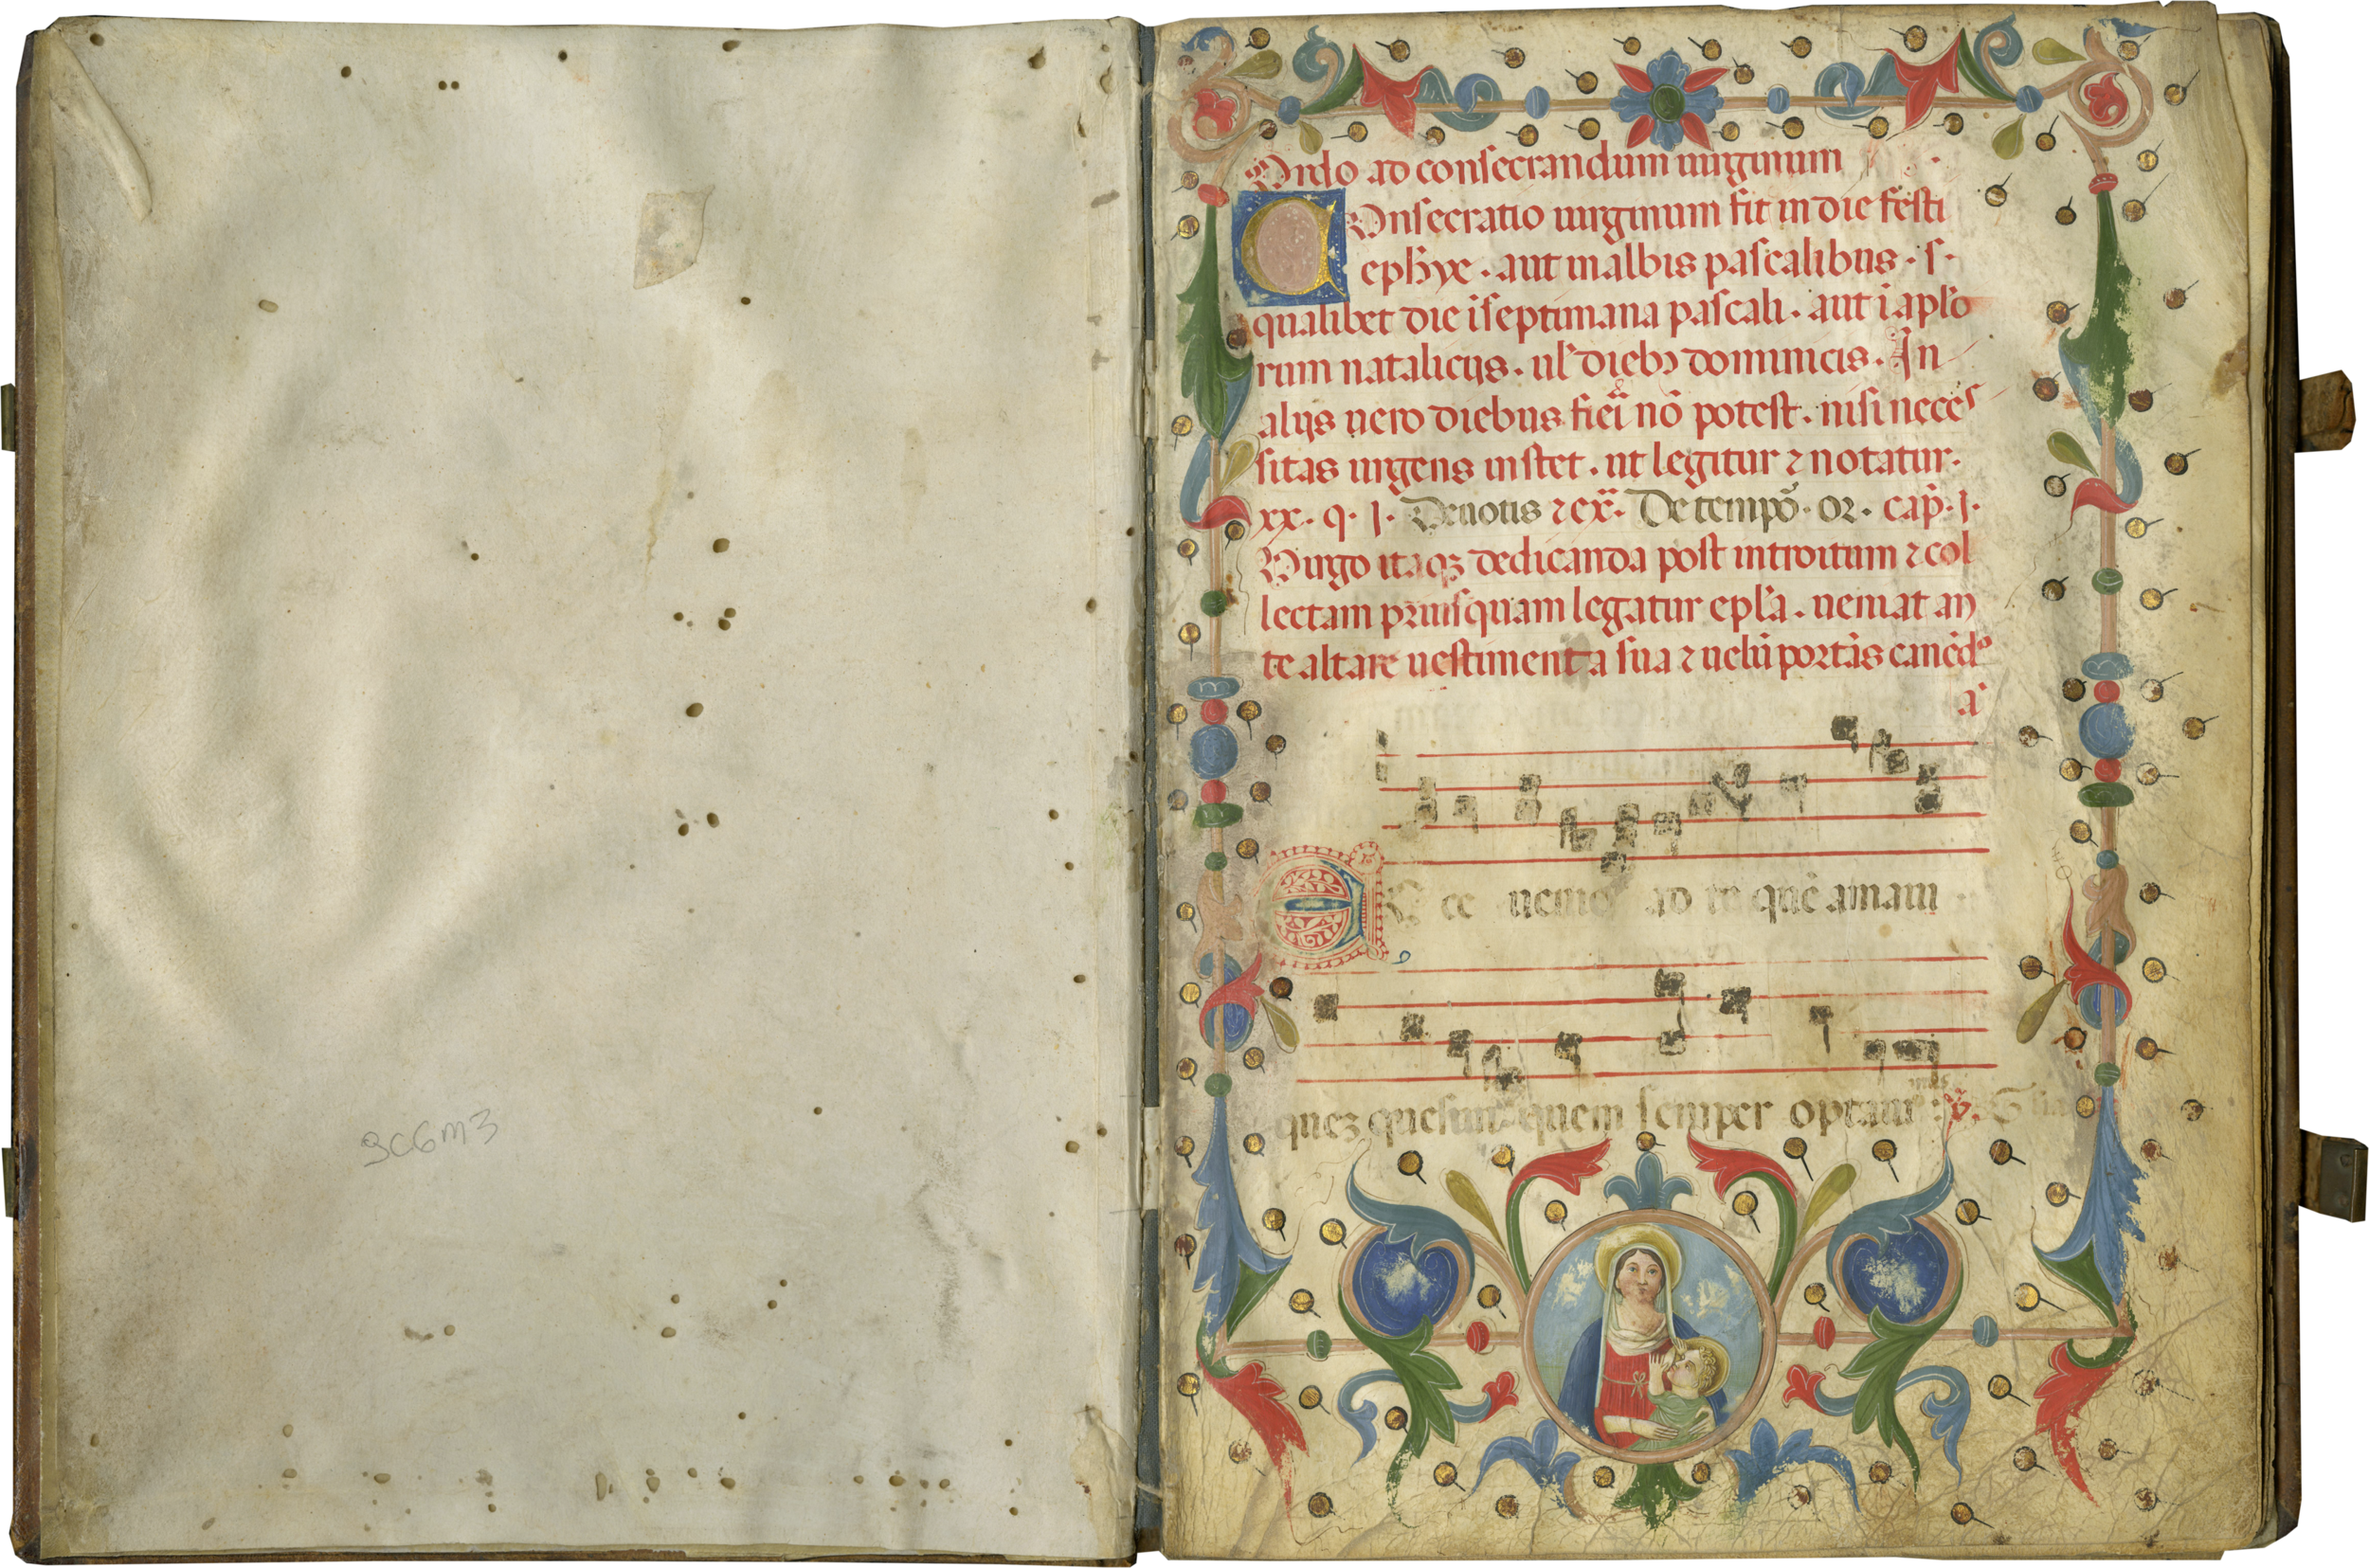 3C6m3
Ordo ad consecrandum uirginum
COnsecratio uirginum fit in die festi
ephyę . aut in albis pascalibus . s .
qualibet die ī septimana pascali . aut ī aplo
rum natalicijs . ul' dieb; dominicis . In
alijs uero diebus fieri nō potest . nisi neces
sitas urgens instet . ut legitur ⁊ notatur .
xx . q . j . Deuotis ⁊ ex̄ . De tempō . or . cap̄ . j .
Virgo itaqꝫ dedicanda post introitum ⁊ col
lectam priusquam legatur epl'a . ueniat an
te altare uestimenta sua ⁊ uelū portās canēdo
a
Ecce uenio ad te quē amaui
queꝫ quesiui quem semper optaui